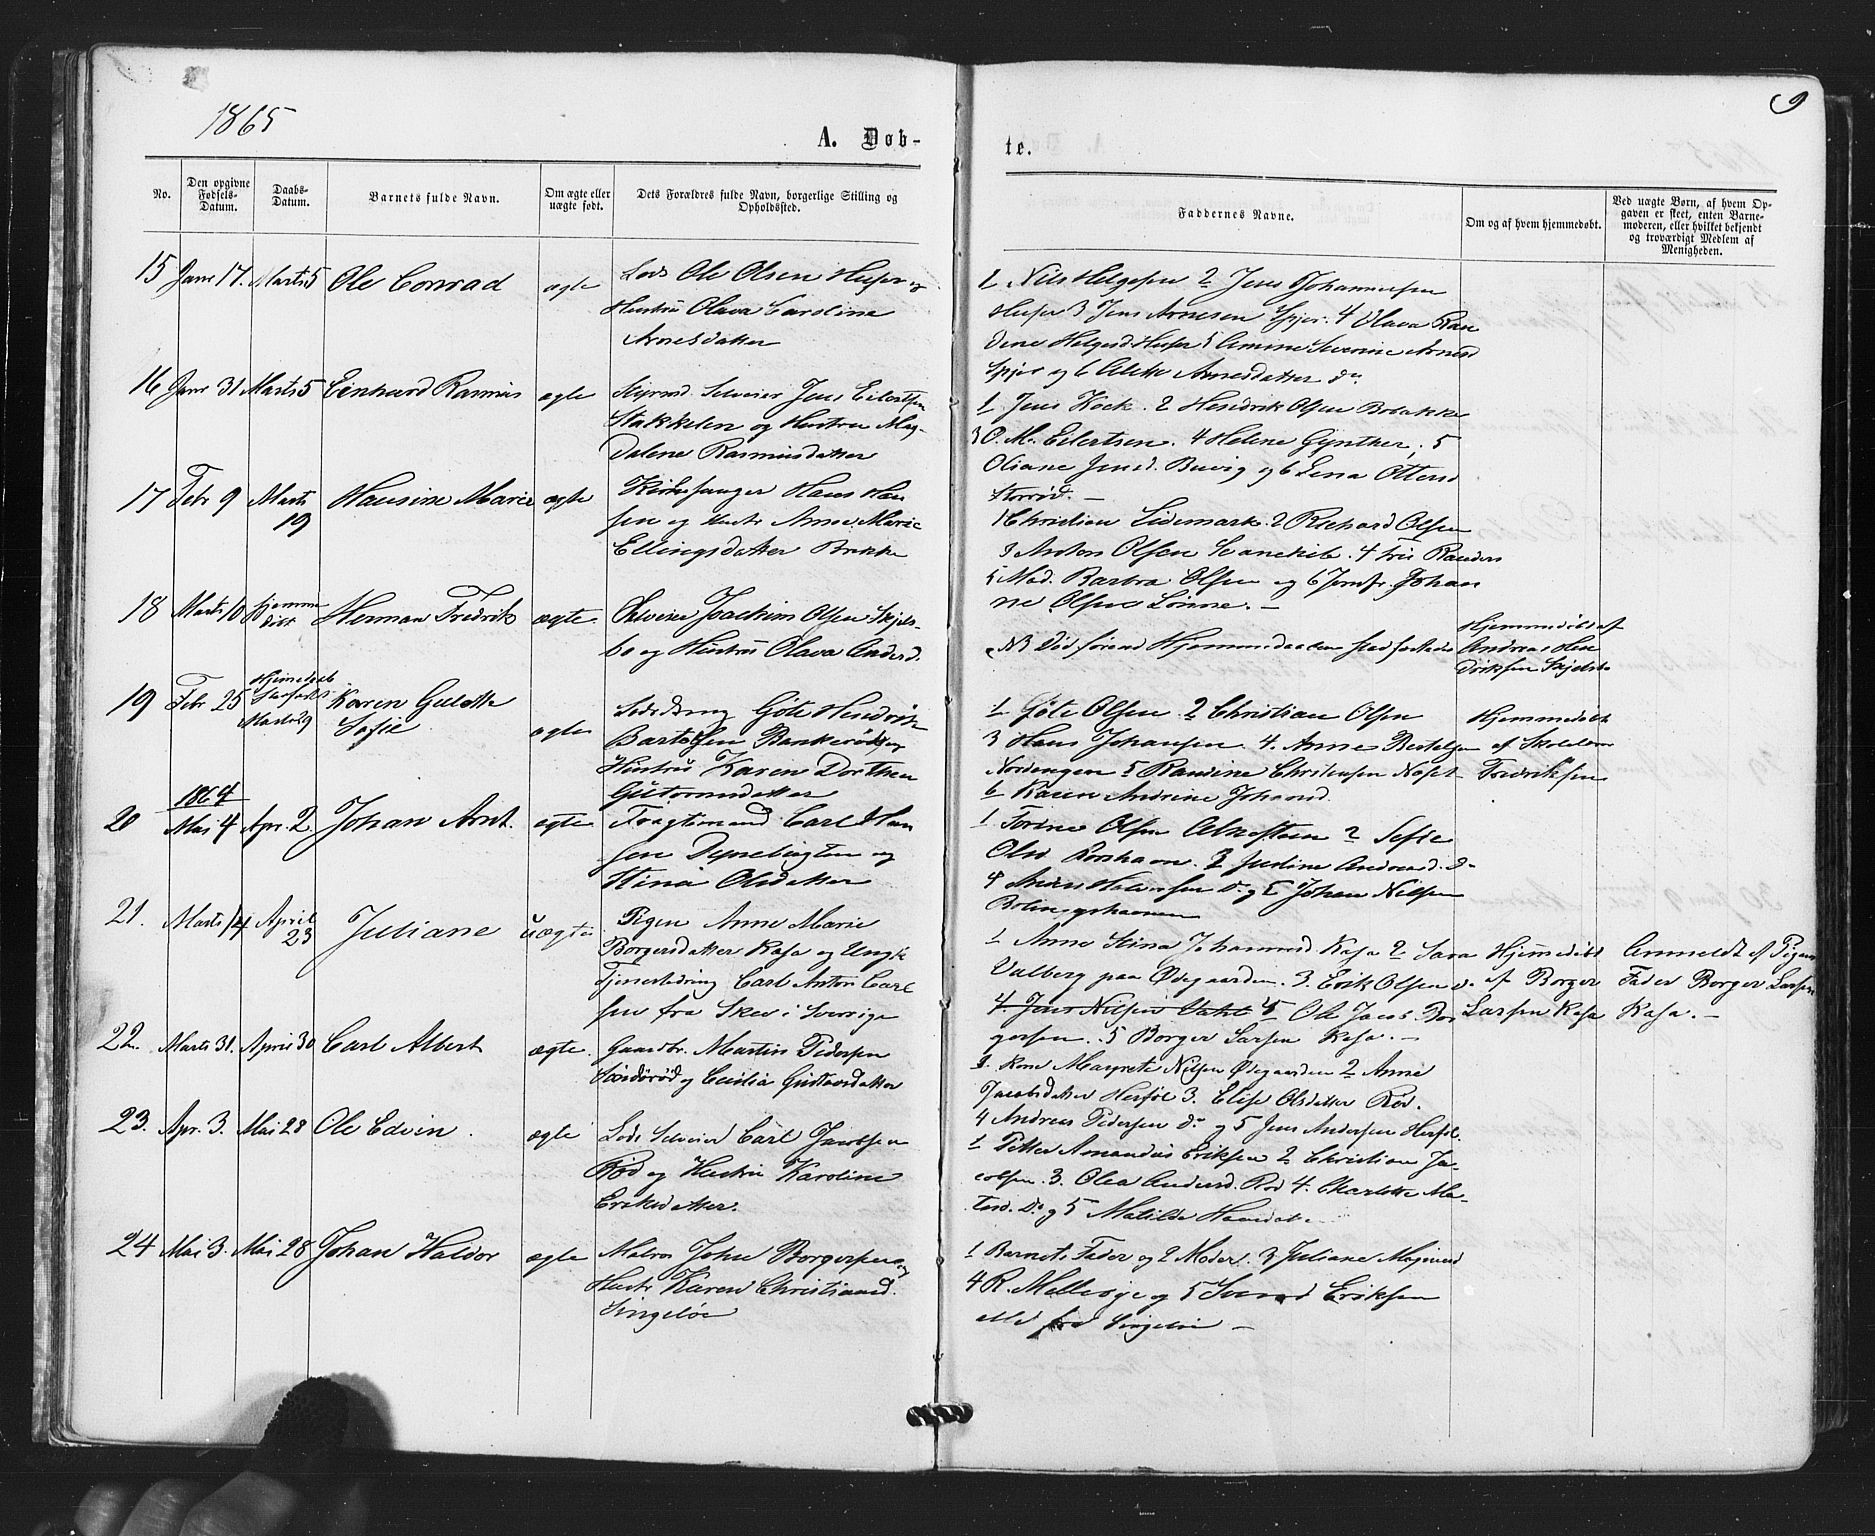 1865
9
A. Døb-
te.
No.
Den opgivne
Fødsels-
Datum.
Daabs-
Datum.
Barnets fulde Navn.
Om ægte eller
uægte født.
Dets Forældres fulde Navn, borgerlige Stilling og
Opholdssted.
Faddernes Navne.
Om og af hvem hjemmedøbt.
Ved uægte Børn, af hvem Op-
gaven er skeet, enten Barne-
moderen, eller hvilket bekjendt
og troværdigt Medlem af
Menigheden.
15 Janr 17. Marts 5 Ole Conrad ægte
Lods Ole Olsen Huser og
Hustru Olava Caroline
Arnesdatter
1 Nils Helgesen 2 Jens Johannesen
Huser 3 Jens Arnesen Spjer. 4 Olava Ran
dine Helgesd. Huser 5 Amine Severine Arnesd
Spjer og 6 Arnesdatter do
16 Janr 31 Marts 5 Einhard Rasmus ægte
Styrmd. Selveier Jens Eilertsen
Stakkelen og Hustru Mag-
dalene Rasmusdatter
1 Jens Kock. 2 Hendrik Olsen Bobakke
3 O. M. Eilertsen. 4 Helene Gynther, 5
Oliane Jensd. Buvig og 6 Lena Ottersd
17 Febr 9 Marts
19
Hansine Marie ægte
Kirkesanger Hans Han
sen og Hustr Anne Marie
Ellingsdatter Brekke
1 Christian Lidemark. 2 Richard Olsen
3 Anton Olsen 4 Randers
5 Mad. Barbra Olsen og 6 Jomfr. Johan
ne Olsen Lønne. —
18 Marts 10 Hjemme
døbt
Herman Fredrik ægte.
Selveier Joachim Olsen Skjels-
bo og Hustru Olava Andersd.
Hjemmedøbt af
Andreas Hen
driksen Skjelsbo
19 Febr 25
Marts 19
Karen Gulette
Sofie
ægte
Lodsdreng Gøte Hendrik
Bartelsen Bankerød og
Hustru Karen Dorthea
Guttormsdatter
1 Gøte Olsen 2 Christian Olsen
3 Hans Johansen 4. Anne Bertelsen
Nordengen 5 Randine Christensen
6 Karen Andrine Johansd.
Hjemmedøbt
af Skolelærer
Fredriksen
1864
20 Mai 4 Apr. 2. Johan Arnt. ægte
Carl Han
sen og
Stina Olsdatter
1 Torine Olsen 2 Sofie
Olsd. 3 Justine Andreasd. do
4 do og 5 Johan Nilsen
21. Marts 14 April
23
Juliane uægte
Pigen Anne Marie
Borgersdatter Kasa og Ungk
Carl Anton Carl
sen fra Skee i Sverrige
1 Anne Stina Johannesd Kasa 2 Sara
Valberg paa Ødegaarden. 3. Erik Olsen do
4. Jens Nilsen 4 Ole Jacob Bor
gersen. 5 Borger Larsen Kasa. —
Hjemmedøbt
af Borger
Larsen Kasa
Anmeldt af Pigens
Fader Borger Larsen
Kasa. —
22. Marts 31. April 30 Carl Albert ægte.
Gaardbr. Martin Pedersen
Sønderød og Gustavsdatter
1. Kone Margrete Nilsen Ødegaarden 2 Anne
Jacobsdatter Herføl 3. Elise Olsdatter Rød.
4 Andreas Pedersen do og 5 Jens Andersen Herføl.
23. Apr. 3. Mai 28 Ole Edvin. ægte
Lods Selveier Carl Jacobsen
Rød og Hustru Karoline
Eriksdatter.
1 Petter Amandus Eriksen 2 Christian Ja-
cobsen. 3. Olea Andersd. Rød 4. Charlotte
do og 5 Matilde
24 Mai 3. Mai 28 Johan Haldor ægte
Matros John Borgersen og
Hustr Karen Christiansd.
Singeløe
1 Barnets Fader og 2 Moder. 3 Juliane Magnusd
4 R. Mellerje og 5 Svend Eriksen
alle fra Singeløe —